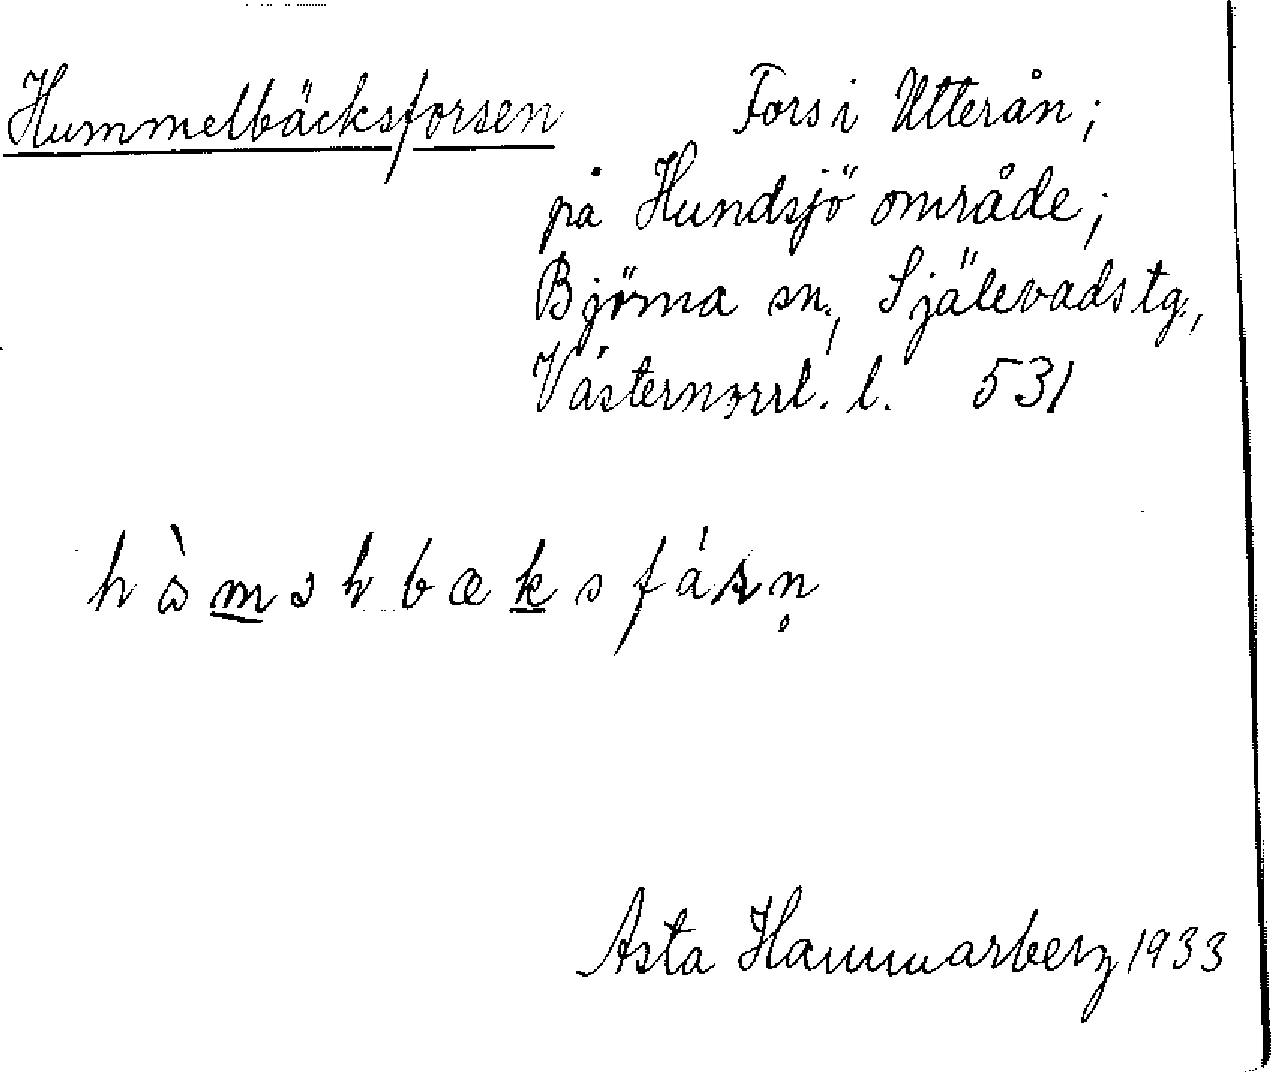 Hummelbäcksforsen Fors i Utterån;
på Hundsjö område;
Björna sn, Själevads tg.,
Västernorrl. l. 531
Asta Hammarberg 1933